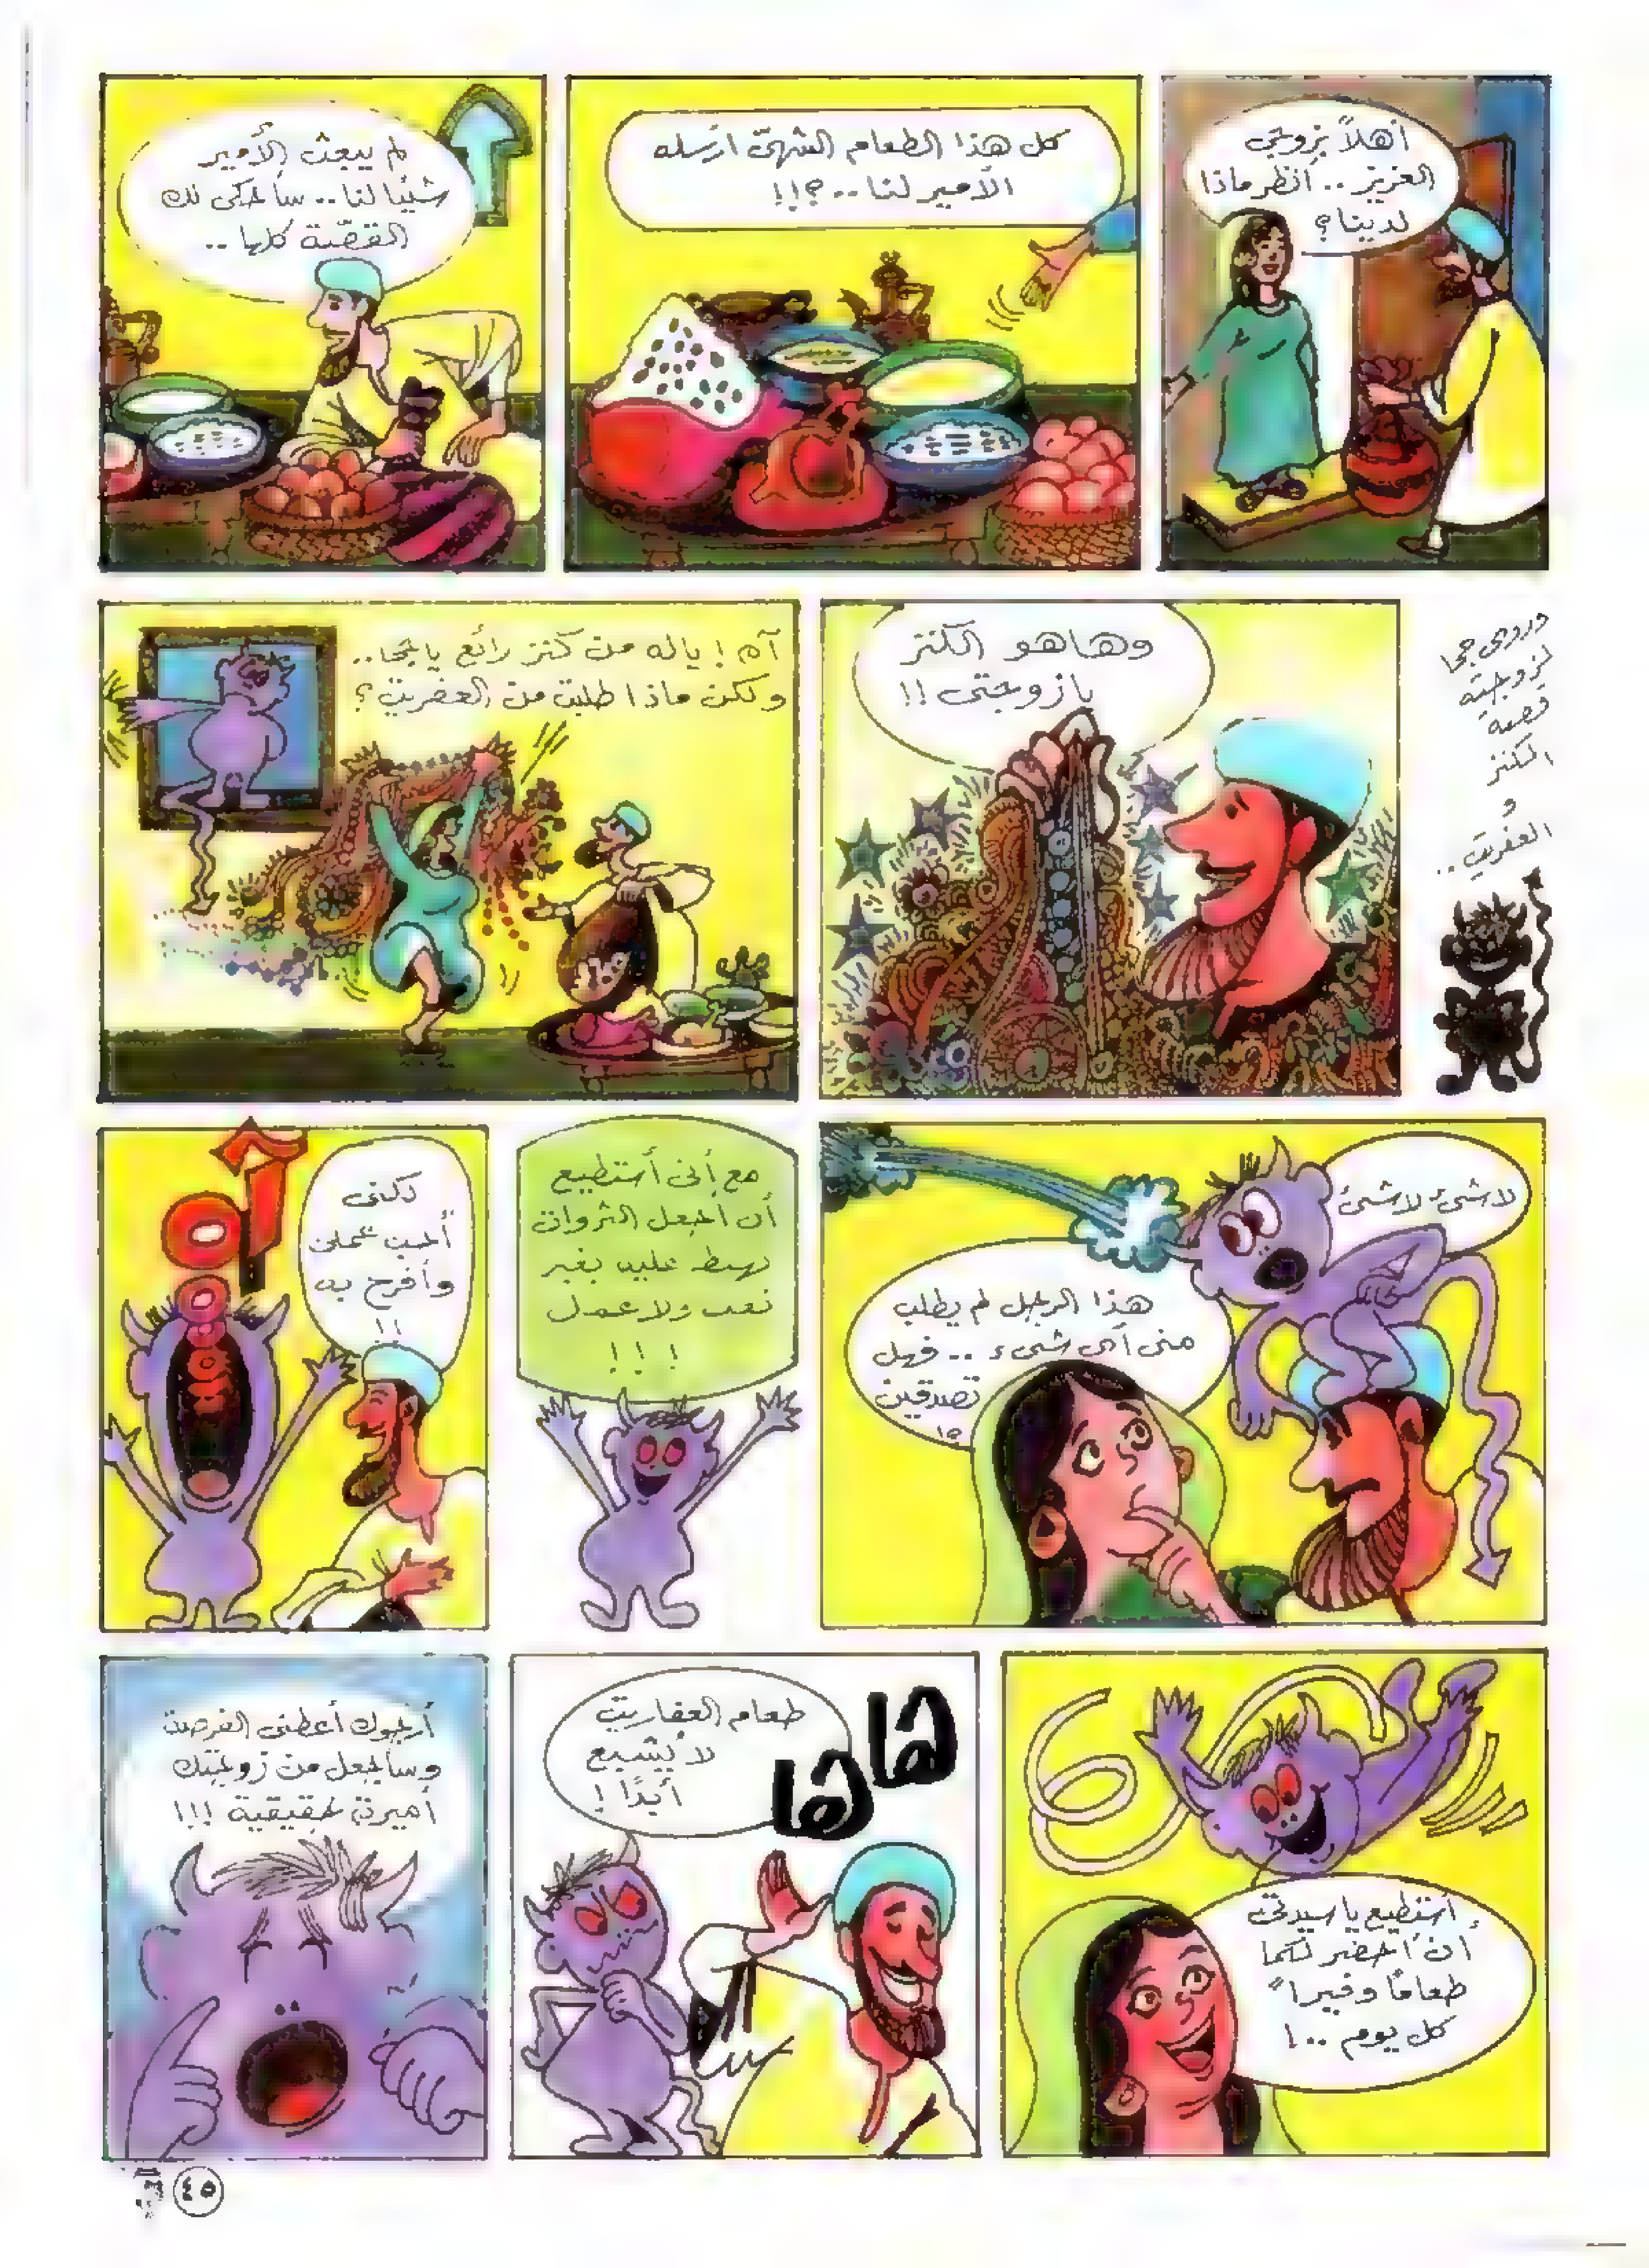 أهلاً بزوجي
العزيز.. أنظر ماذا
لدينا؟
كل هذا الطعام الشهيّ أرسله
الأمير لنا..؟!!
لم يبعث الأمير
شيئا لنا.. سأحكى لك
القصّة كلها..
وروى جحا
لزوجته
قصة
الكنز
و
العفريت..
وهاهو الكنز
يازوجتى!!
آه! ياله من كنز رائع ياجحا..
ولكن ماذا طلبت من العفريت؟
لاشىء لاشىء
هذا الرجل لم يطلب
منى أى شىء.. فهل
تصدقين
؟!
مع أنى أستطيع
أن أجعل الثروات
تهبط عليه بغير
تعب ولا عمل
!!!
لكنى
أحب عملى
وأفرح به
!!
آه
أستطيع يا سيدتى
أن أحضر لكما
طعامًا وفيراً
كل يوم..!
هاها
طعام العفاريت
لا يشبع
أبدًا!
أرجوك أعطنى الفرصة
وسأجعل من زوجتك
أميرة حقيقية!!!
٤٥